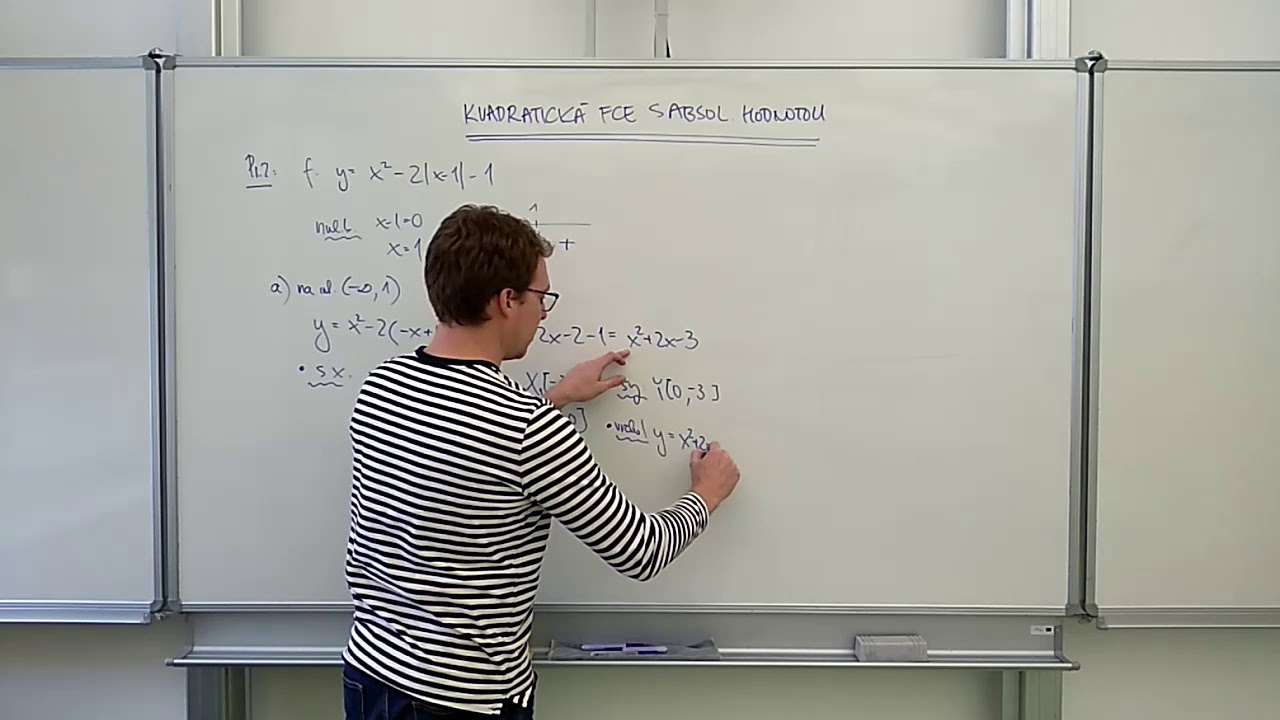 KVADRATICKÁ FCE S ABSOL. HODNOTOU
Př.2: f: y= x²-2|x-1|-1
nul.b. x-1=0 1
x=1 +
a) na int. (-∞,1)
y= x²-2(-x+ 2x-2-1= x²+2x-3
• Sx. X₁[- Sy. Y[0,-3]
0] • vrchol y= x²+2x